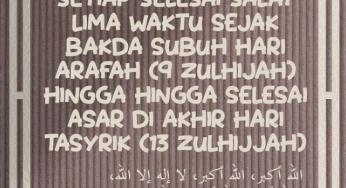 SETIAP SELESAI SALAT
LIMA WAKTU SEJAK
BAKDA SUBUH HARI
ARAFAH (9 ZULHIJAH)
HINGGA HINGGA SELESAI
ASAR DI AKHIR HARI
TASYRIK (13 ZULHIJJAH)
الله أكبر، الله أكبر، لا إله إلا الله،